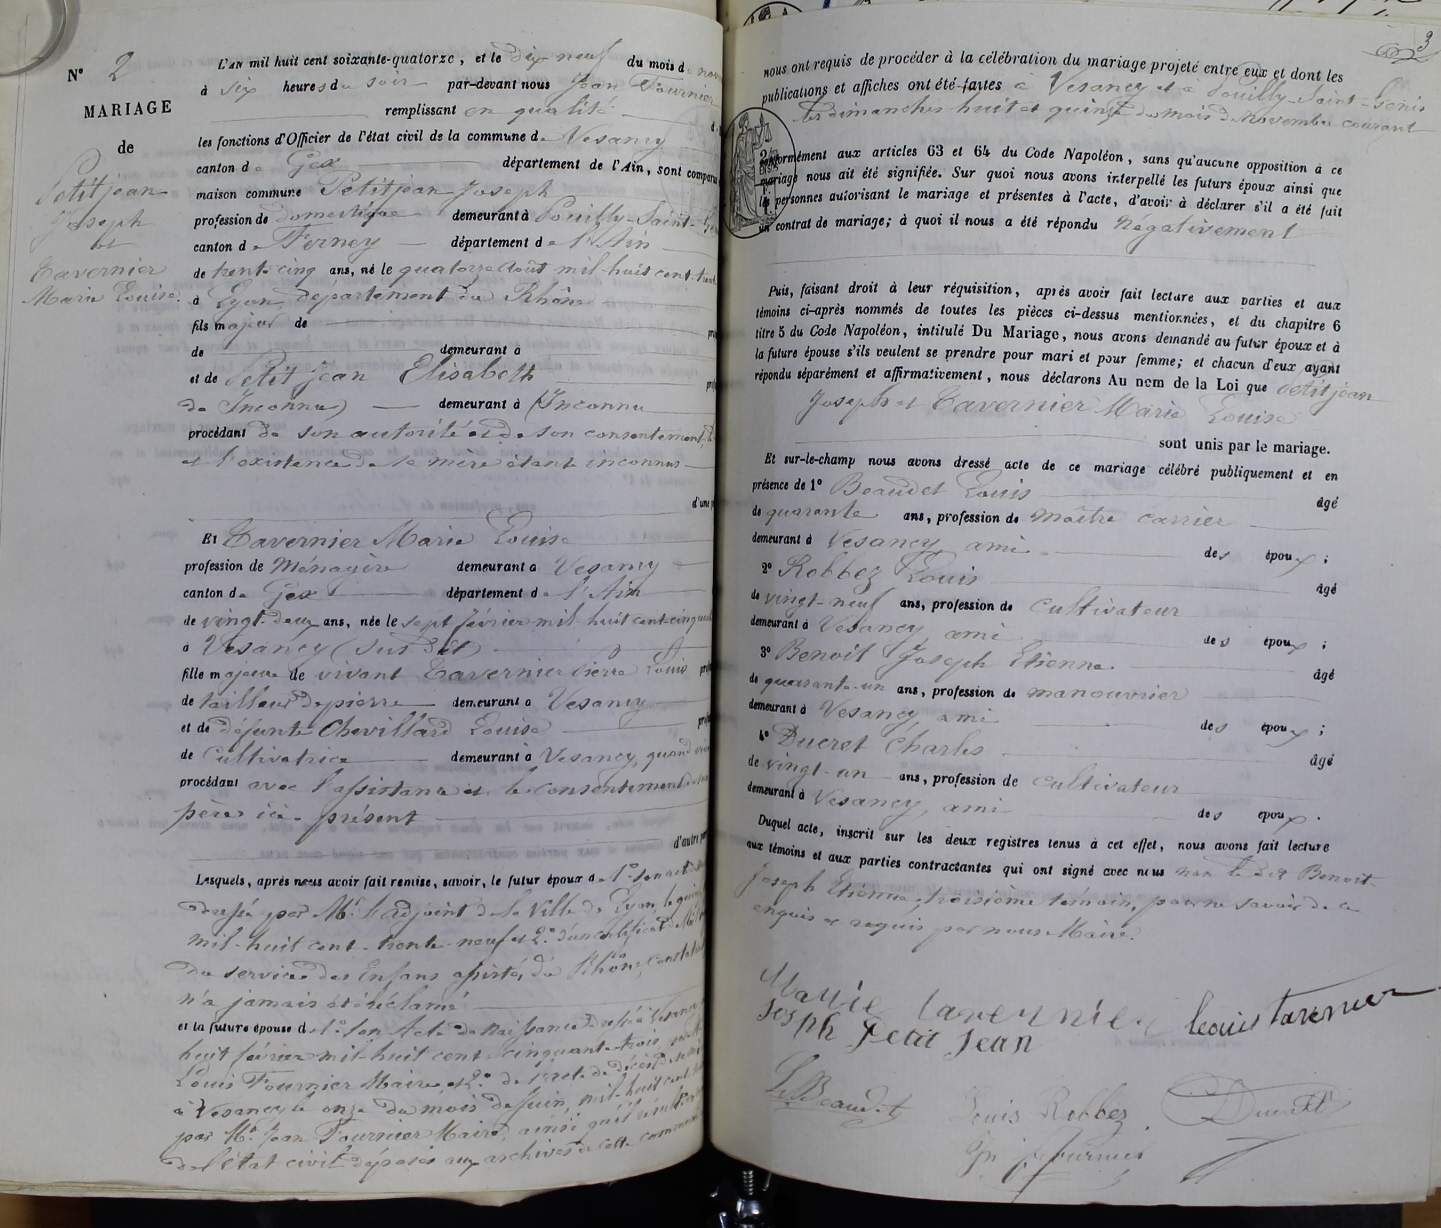 N° 2
MARIAGE
de
Petitjean
Joseph
et
Tavernier
Marie Louise.
L'AN mil huit cent soixante-quatorze, et le dix neuf du mois d
à six heures du soir par-devant nous Jean Fournier
remplissant en qualité
les fonctions d'Officier de l'état civil de la commune de Vesancy
canton de Gex département de l'Ain, sont comparus
maison commune Petitjean Joseph
profession de domestique demeurant à Pouilly-Saint-
canton de Ferney département de l'Ain
de trente cinq ans, né le quatorze Août mil-huit cent-
à Lyon département du Rhône
fils majeur de
de demeurant à
et de Petit Jean Elisabeth
de (Inconnu) demeurant à (Inconnu
procédant de son autorité et de son consentement,
et l'existence de sa mère étant inconnus
d'une
Et Tavernier Marie Louise
profession de Ménagère demeurant à Vesancy
canton de Gex département de l'Ain
de vingt-deux ans, née le sept février mil-huit cent-
à Vesancy (sus dit)
fille majeure de vivant Tavernier Pierre Louis
de tailleur de pierre demeurant à Vesancy
et de défunte Chevillard Louise
de Cultivatrice demeurant à Vesancy, quand
procédant avec l'assistance et le consentement de
père ici présent
d'autre
Lesquels, après nous avoir fait remise, savoir, le futur époux de 1° son acte
par Mr l'adjoint de la Ville de Lyon le
mil-huit cent-trente-neuf et 2° d'un certificat de
du service des Enfans assistés du Rhône,
n'a jamais été réclamé
et la future épouse de 1° Son Acte de Naissance dressé à Vesancy
huit février mil huit cent cinquante-trois
Louis Fournier Maire et 2° de l'acte de décès de
à Vesancy le onze du mois de Juin, mil-huit cent
par Mr Jean Fournier Maire, ainsi qu'il résulte
de l'état civil déposés aux archives de cette commune
3
nous ont requis de procéder à la célébration du mariage projeté entre eux et dont les
publications et affiches ont été faites à Vesancy et à Pouilly-Saint-Genis
les dimanches huit et quinze du mois de Novembre courant
conformément aux articles 63 et 64 du Code Napoléon, sans qu'aucune opposition à ce
mariage nous ait été signifiée. Sur quoi nous avons interpellé les futurs époux ainsi que
les personnes autorisant le mariage et présentes à l'acte, d'avoir à déclarer s'il a été fait
un contrat de mariage; à quoi il nous a été répondu Négativement
Puis, faisant droit à leur réquisition, après avoir fait lecture aux parties et aux
témoins ci-après nommés de toutes les pièces ci-dessus mentionnées, et du chapitre 6
titre 5 du Code Napoléon, intitulé Du Mariage, nous avons demandé au futur époux et à
la future épouse s'ils veulent se prendre pour mari et pour femme; et chacun d'eux ayant
répondu séparément et affirmativement, nous déclarons Au nom de la Loi que Petitjean
Joseph et Tavernier Marie Louise
sont unis par le mariage.
Et sur-le-champ nous avons dressé acte de ce mariage célébré publiquement et en
présence de 1° Beaudet Louis âgé
de quarante ans, profession de maître carrier
demeurant à Vesancy, ami des époux;
2° Robbez Louis âgé
de vingt-neuf ans, profession de cultivateur
demeurant à Vesancy, ami des époux;
3° Benoit Joseph Etienne âgé
de quarante-un ans, profession de manouvrier
demeurant à Vesancy, ami des époux;
4° Ducret Charles âgé
de vingt-un ans, profession de cultivateur
demeurant à Vesancy, ami des époux.
Duquel acte, inscrit sur les deux registres tenus à cet effet, nous avons fait lecture
aux témoins et aux parties contractantes qui ont signé avec nous non le dit Benoit
Joseph Etienne, troisième témoin, pour ne savoir de ce
enquis et requis par nous Maire.
Marie tavernier louis tavernier
Joseph Petit Jean
Ls Beaudet Louis Robbez Ducret
Jn Fournier